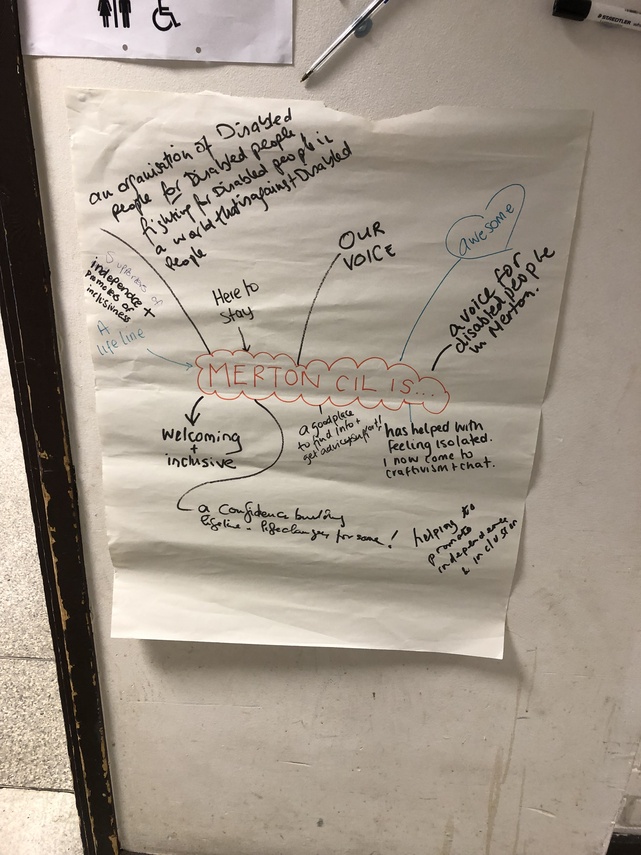 an organisation of Disabled
People for Disabled people
fighting for Disabled people in
a world that is against Disabled
People
OUR
VOICE
awesome
a voice for
disabled people
in Merton.
Supporters of
independence +
promoters of
inclusiveness
A
life line
Here to
stay
MERTON CIL IS...
welcoming
+
inclusive
a good place
to find info +
get advice/support!
has helped with
feeling isolated.
I now come to
craftivism + chat.
a confidence building
lifeline - life changer for some!
helping to
promote
independence
& inclusion
STAEDTLER